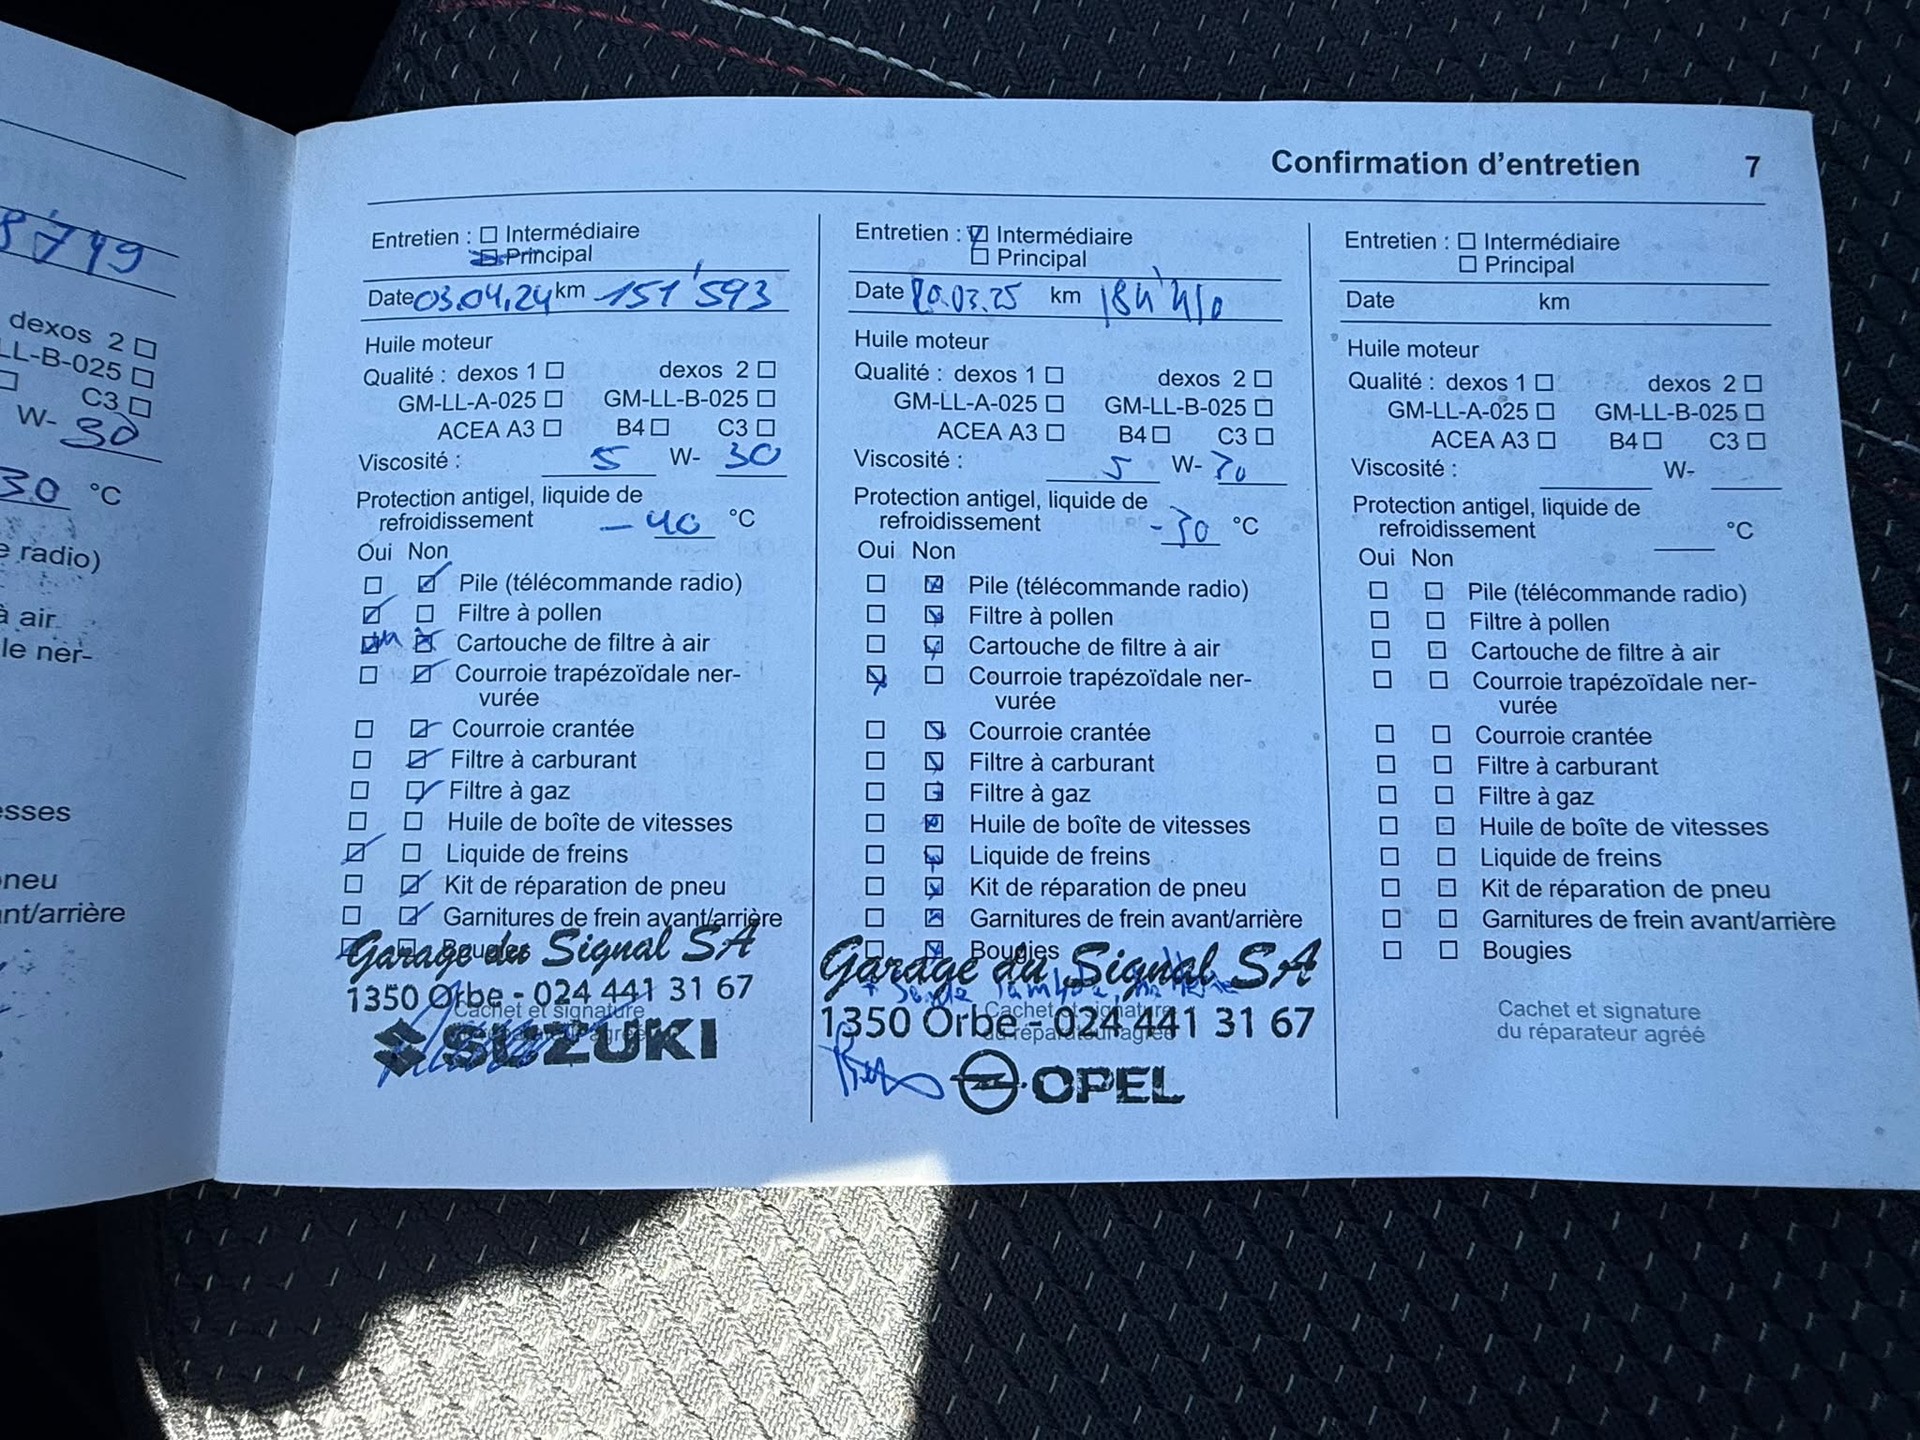 8'749
dexos 2
LL-B-025
C3
W- 30
30 °C
e radio)
à air
le ner-
esses
neu
nt/arrière
Confirmation d'entretien 7
Entretien : Intermédiaire
Principal
Date 03.04.24 km 151'593
Huile moteur
Qualité : dexos 1 dexos 2
GM-LL-A-025 GM-LL-B-025
ACEA A3 B4 C3
Viscosité : 5 W- 30
Protection antigel, liquide de
refroidissement -40 °C
Oui Non
Pile (télécommande radio)
Filtre à pollen
Cartouche de filtre à air
Courroie trapézoïdale ner-
vurée
Courroie crantée
Filtre à carburant
Filtre à gaz
Huile de boîte de vitesses
Liquide de freins
Kit de réparation de pneu
Garnitures de frein avant/arrière
Bougies
Garage du Signal SA
1350 Orbe - 024 441 31 67
Cachet et signature
du réparateur agréé
SUZUKI
Entretien : Intermédiaire
Principal
Date 20.03.25 km 184'410
Huile moteur
Qualité : dexos 1 dexos 2
GM-LL-A-025 GM-LL-B-025
ACEA A3 B4 C3
Viscosité : 5 W- 30
Protection antigel, liquide de
refroidissement -30 °C
Oui Non
Pile (télécommande radio)
Filtre à pollen
Cartouche de filtre à air
Courroie trapézoïdale ner-
vurée
Courroie crantée
Filtre à carburant
Filtre à gaz
Huile de boîte de vitesses
Liquide de freins
Kit de réparation de pneu
Garnitures de frein avant/arrière
Bougies
Garage du Signal SA
Cachet et signature
1350 Orbe - 024 441 31 67
du réparateur agréé
OPEL
Entretien : Intermédiaire
Principal
Date km
Huile moteur
Qualité : dexos 1 dexos 2
GM-LL-A-025 GM-LL-B-025
ACEA A3 B4 C3
Viscosité : W-
Protection antigel, liquide de
refroidissement °C
Oui Non
Pile (télécommande radio)
Filtre à pollen
Cartouche de filtre à air
Courroie trapézoïdale ner-
vurée
Courroie crantée
Filtre à carburant
Filtre à gaz
Huile de boîte de vitesses
Liquide de freins
Kit de réparation de pneu
Garnitures de frein avant/arrière
Bougies
Cachet et signature
du réparateur agréé